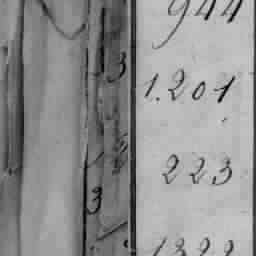 944
3
1.201
223
3
1322